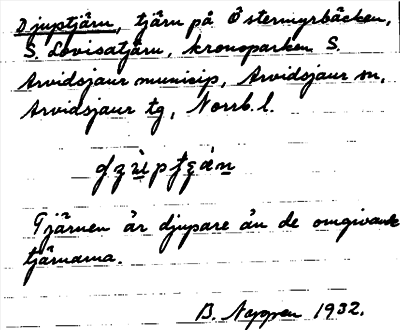 Djuptjärn, tjärn på Östermyrbäcken,
S. Lovisatjärn, kronoparken S.
Arvidsjaur municip, Arvidsjaur sn,
Arvidsjaur tg, Norrb. l.
Tjärnen är djupare än de omgivande
tjärnarna.
B. Nappen 1932.